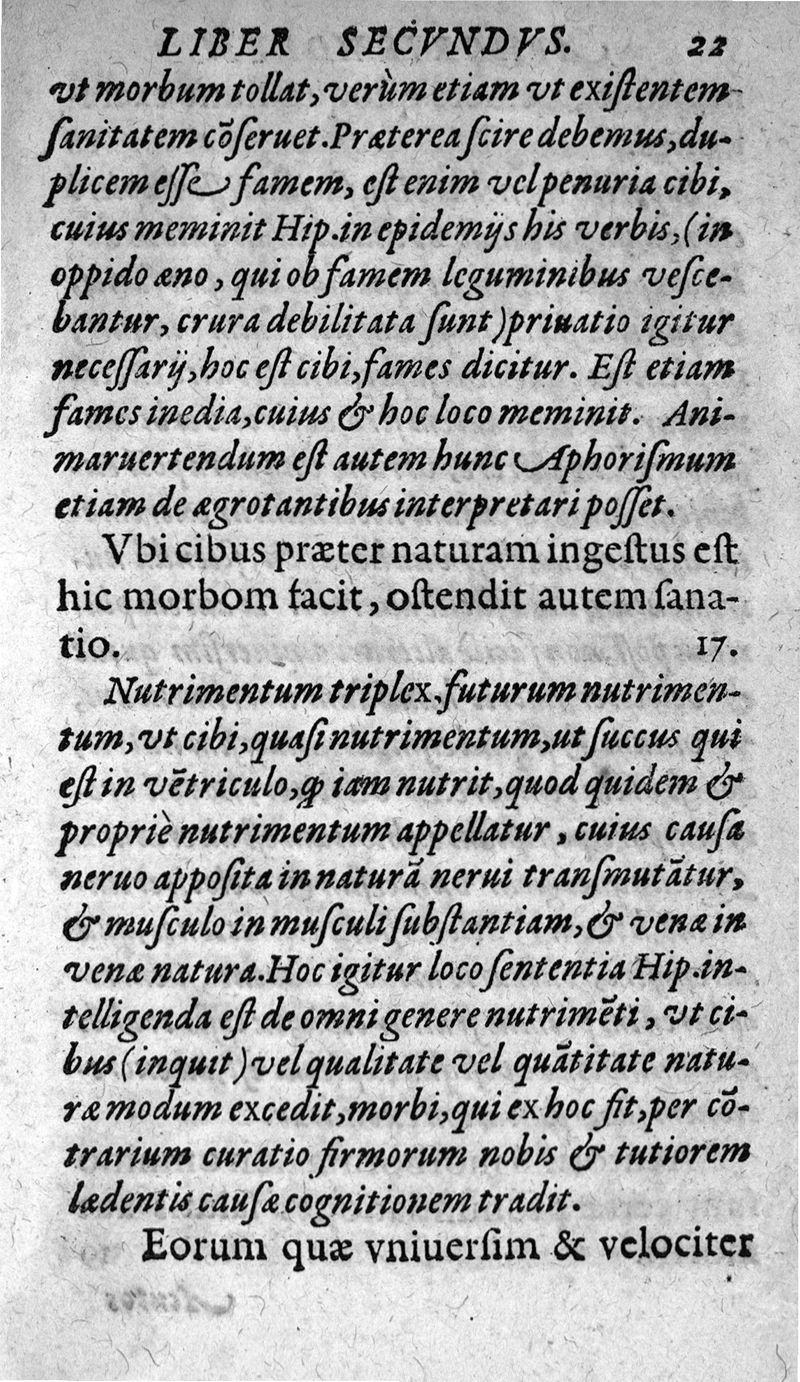 LIBER SECVNDVS. 22
vt morbum tollat, verùm etiam vt exiſtentem
ſanitatem cõſeruet. Præterea ſcire debemus, du-
plicem eſſe famem, eſt enim vel penuria cibi,
cuius meminit Hip. in epidemijs his verbis, (in
oppido æno, qui ob famem leguminibus veſce-
bantur, crura debilitata ſunt) priuatio igitur
neceſſarij, hoc eſt cibi, fames dicitur. Eſt etiam
fames inedia, cuius & hoc loco meminit. Ani-
maruertendum eſt autem hunc Aphoriſmum
etiam de ægrotantibus interpretari poſſet.
Vbi cibus præter naturam ingeſtus eſt
hic morbom facit, oſtendit autem ſana-
tio. 17.
Nutrimentum triplex, futurum nutrimen-
tum, vt cibi, quaſi nutrimentum, ut ſuccus qui
eſt in vẽtriculo, ꝙ iam nutrit, quod quidem &
propriè nutrimentum appellatur, cuius cauſa
neruo appoſita in naturã nerui tranſmutãtur,
& muſculo in muſculi ſubſtantiam, & venæ in
venæ natura. Hoc igitur loco ſententia Hip. in-
telligenda eſt de omni genere nutrimẽti, vt ci-
bus (inquit) vel qualitate vel quãtitate natu-
ræ modum excedit, morbi, qui ex hoc fit, per cõ-
trarium curatio firmorum nobis & tutiorem
lædentis cauſæ cognitionem tradit.
Eorum quæ vniuerſim & velociter